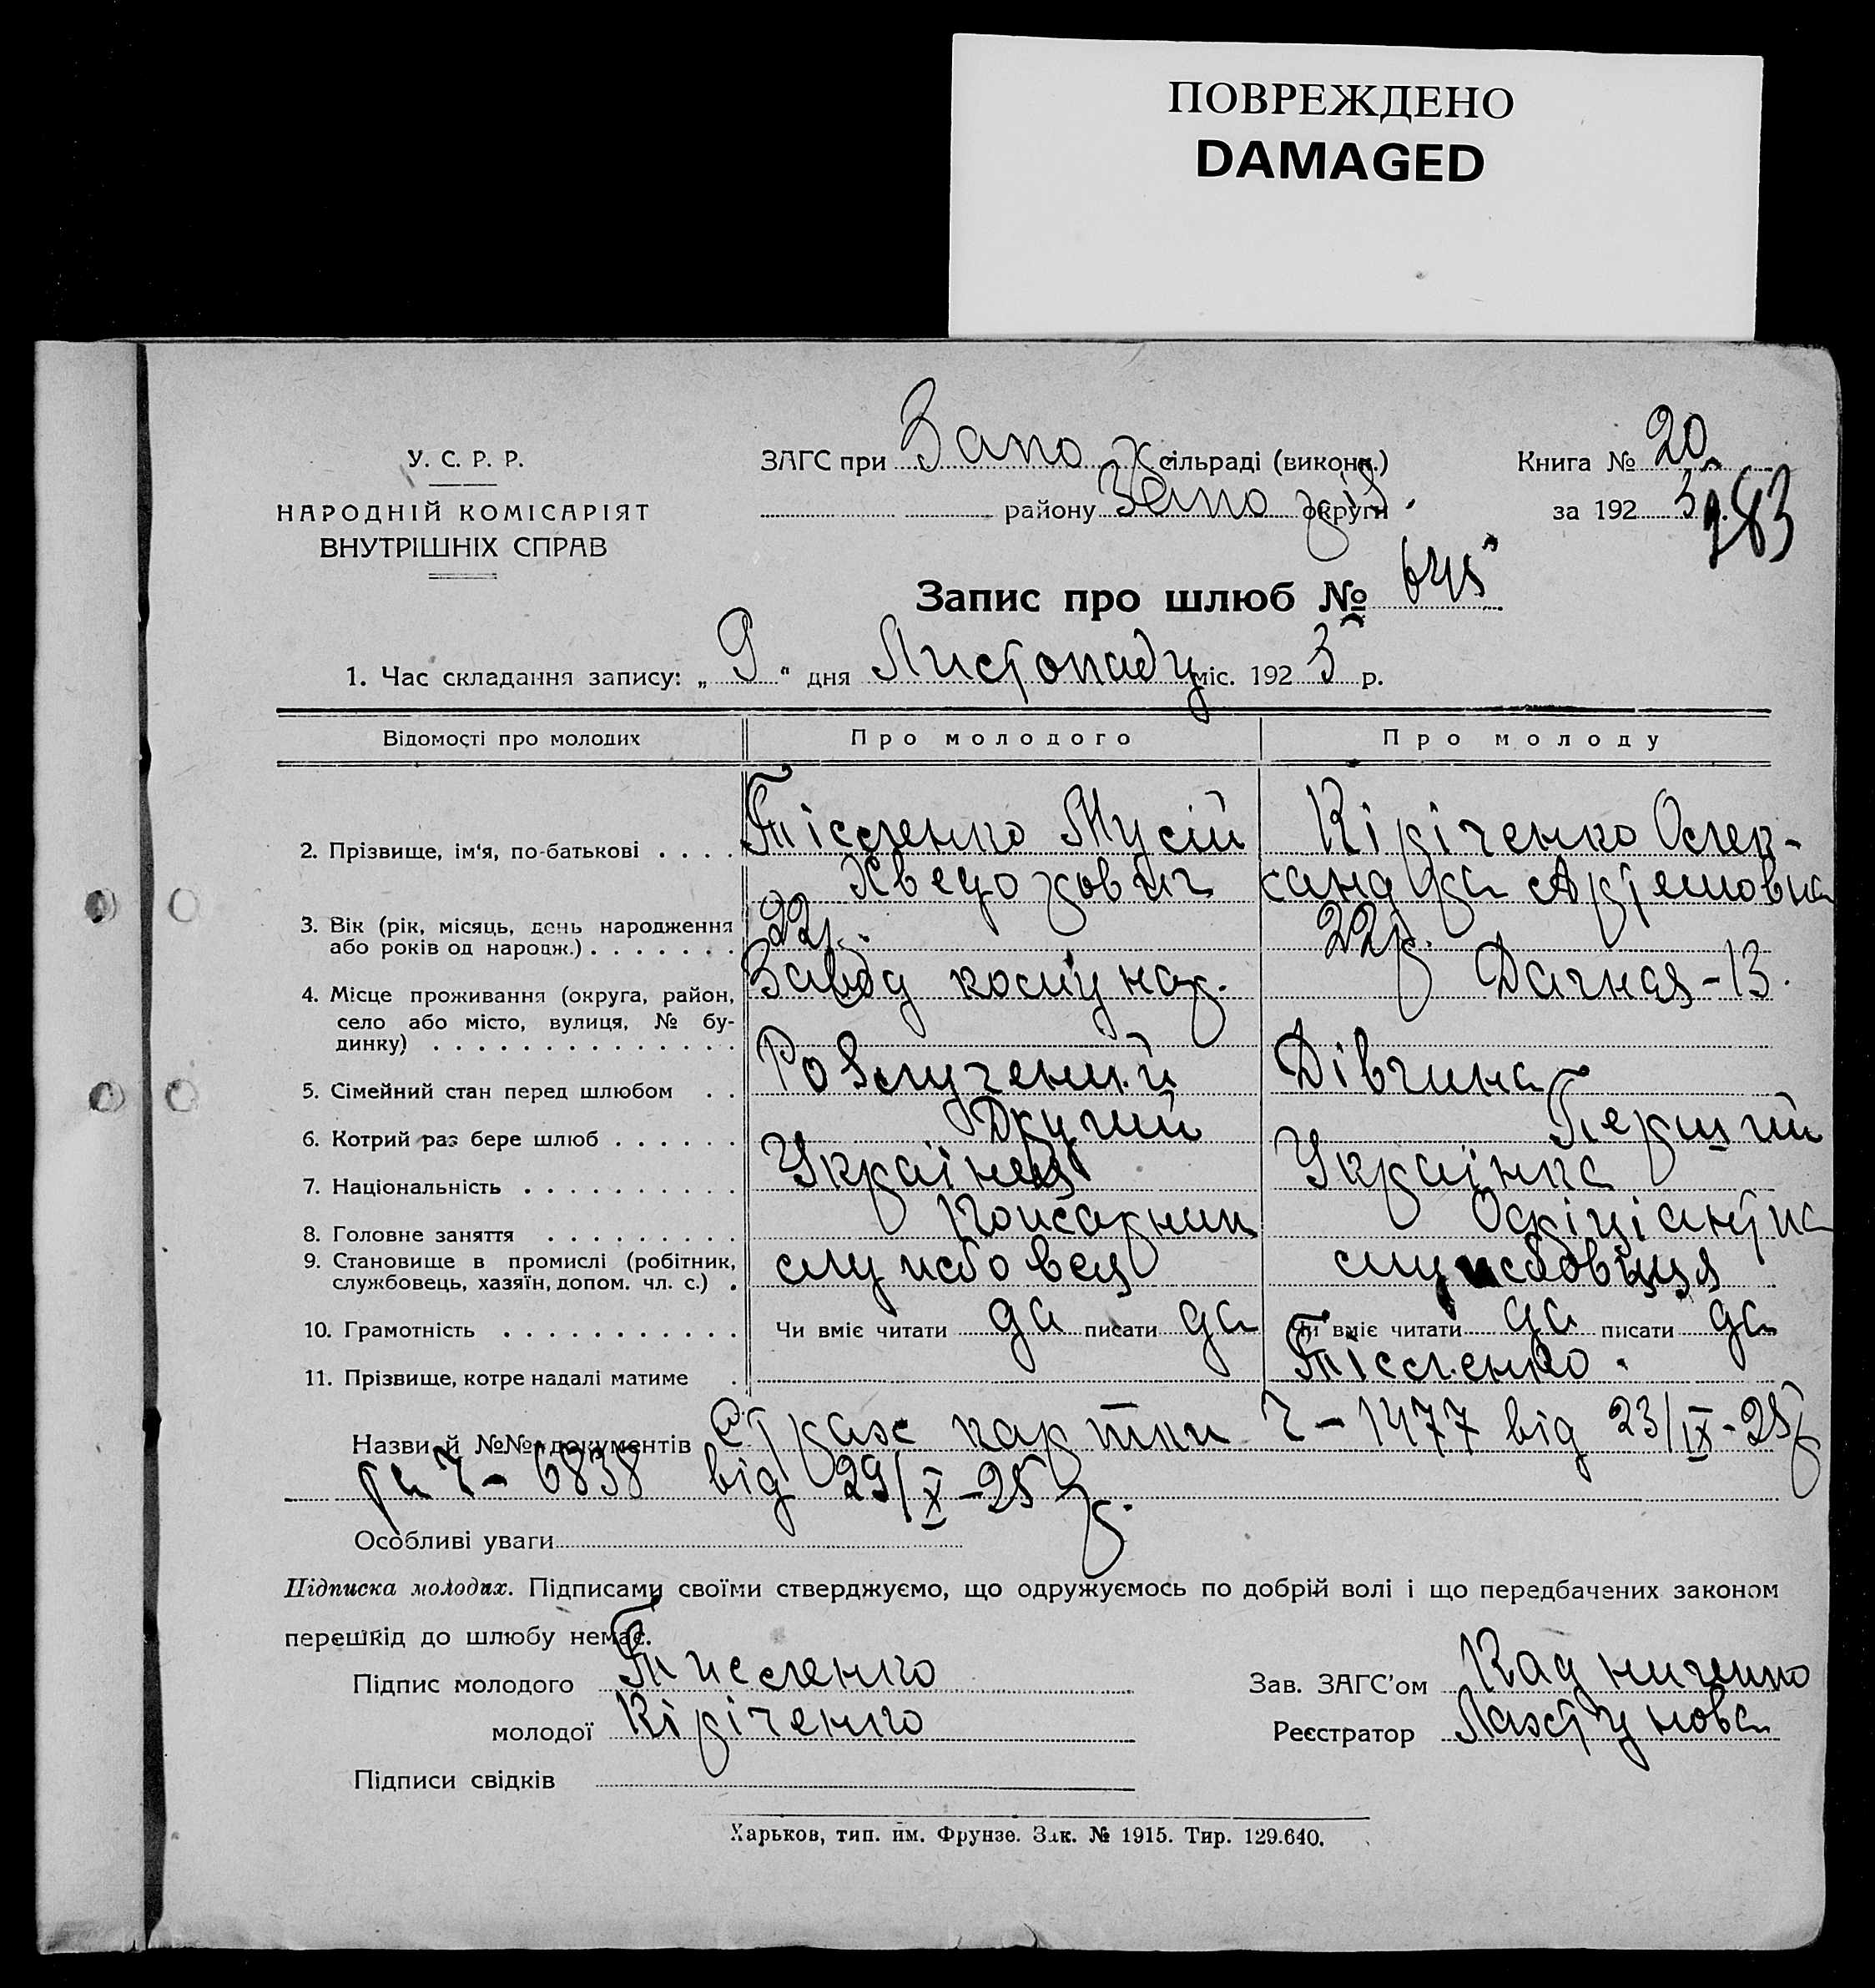 ПОВРЕЖДЕНО
DAMAGED
У. С. Р. Р.
НАРОДНІЙ КОМІСАРІЯТ
ВНУТРІШНІХ СПРАВ
ЗАГС при Запо сільраді (виконк.)
району Запо округи
Книга № 20
за 192 5 р.
283
Запис про шлюб № 645
1. Час складання запису: „ 9 “ дня Листопаду міс. 192 5 р.
Відомості про молодих Про молодого Про молоду
2. Прізвище, ім'я, по-батькові . . . . Тісленко Мусій Кіріченко Олек-
Хведорович сандра Артемовна
3. Вік (рік, місяць, день народження 22р. 22р.
або років од народж.) . . . . . . .
4. Місце проживання (округа, район, Завод комунар. Дачная-13.
село або місто, вулиця, № бу-
динку) . . . . . . . . . . . . . .
5. Сімейний стан перед шлюбом . . Розлучений Дівчина
6. Котрий раз бере шлюб . . . . . . Другий Перший
7. Національність . . . . . . . . . . Українець Українка
8. Головне заняття . . . . . . . . . Пожарник
9. Становище в промислі (робітник, службовець службовиця
службовець, хазяїн, допом. чл. с.) .
10. Грамотність . . . . . . . . . . . Чи вміє читати да писати да Чи вміє читати да писати да
11. Прізвище, котре надалі матиме . Тісленко.
Назви й №№ документів Страх картки ч-1477 від 23/IX-25р
ч-6838 від 29/X-25р.
Особливі уваги
Підписка молодих. Підписами своїми стверджуємо, що одружуємось по добрій волі і що передбачених законом
перешкід до шлюбу немає.
Підпис молодого Тисленко Зав. ЗАГС'ом
молодої Кіріченко Реєстратор
Підписи свідків
Харьков, тип. им. Фрунзе. Зак. № 1915. Тир. 129.640.